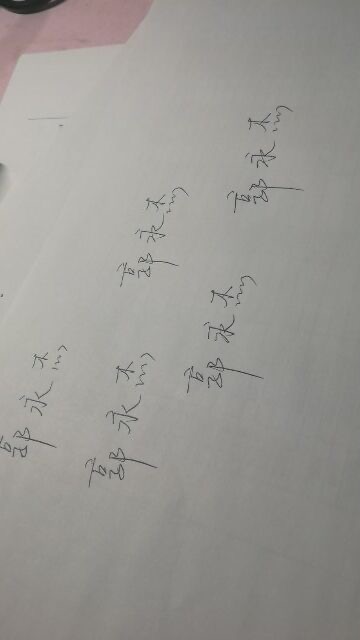 郭永杰
郭永杰
郭永杰
郭永杰
郭永杰